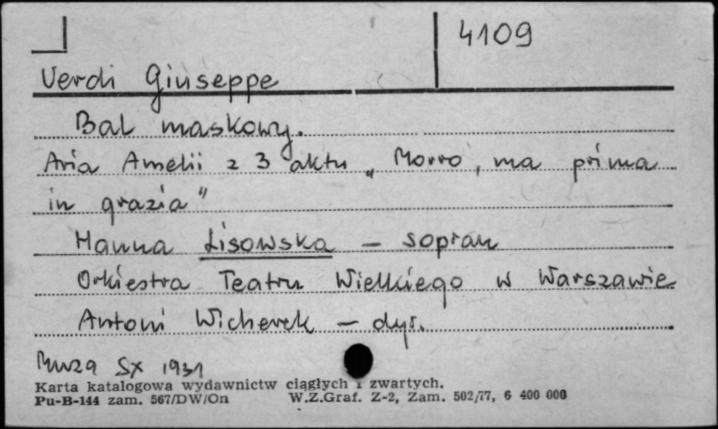 4109
Verdi Giuseppe
Bal maskowy.
Aria Amelii z 3 aktu „Morro, ma prima
in grazia"
Hanna Lisowska – sopran
Orkiestra Teatru Wielkiego w Warszawie
Antoni Wicherek – dyr.
Muza SX 1931
Karta katalogowa wydawnictw ciągłych i zwartych.
Pu-B-144 zam. 567/DW/On W.Z.Graf. Z-2, Zam. 502/77, 6 400 000